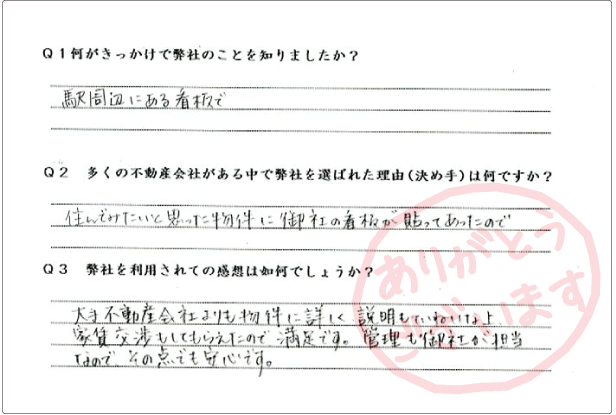 Q1何がきっかけで弊社のことを知りましたか？
駅周辺にある看板で
Q2 多くの不動産会社がある中で弊社を選ばれた理由（決め手）は何ですか？
住んでみたいと思った物件に御社の看板が貼ってあったので
Q3 弊社を利用されての感想は如何でしょうか？
大手不動産会社よりも物件に詳しく説明もていねいな上
家賃交渉もしてもらえたので満足です。管理も御社が担当
なので、その点でも安心です。
ありがとう
ございます